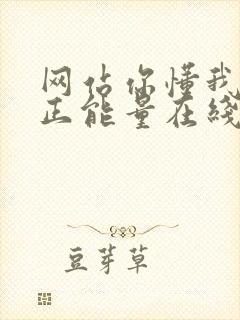 网站你懂我
正能量在线
豆芽草